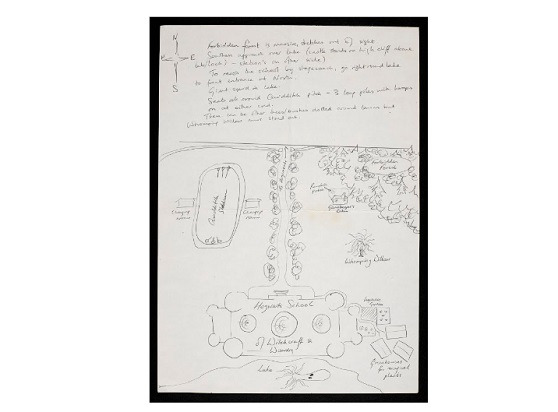 N
E
S
Forbidden forest is massive, stretches out of sight.
Southern approach over lake (castle stands on high cliff above
loch/lake) - station's on other side)
To reach the school by stagecoach, go right round lake
to front entrance at North.
Giant squid in lake.
Seats all around Quidditch pitch - 3 long poles with hoops
on at either end.
There can be other trees/bushes dotted around lawns but
Whomping Willow must stand out.
Forbidden
Forest
Quidditch
Stadium
Changing
rooms
Changing
rooms
Pumpkin
Gamekeeper's
Cabin
Whomping Willow
Hogwarts School
of Witchcraft &
Wizardry
Vegetable
Garden
Greenhouses
for magical
plants
Lake